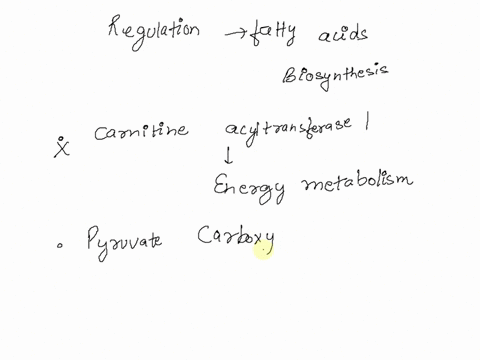 Regulation → fatty acids
Biosynthesis
X Carnitine acyltransferase 1
↓
Energy metabolism
• Pyruvate Carboxy